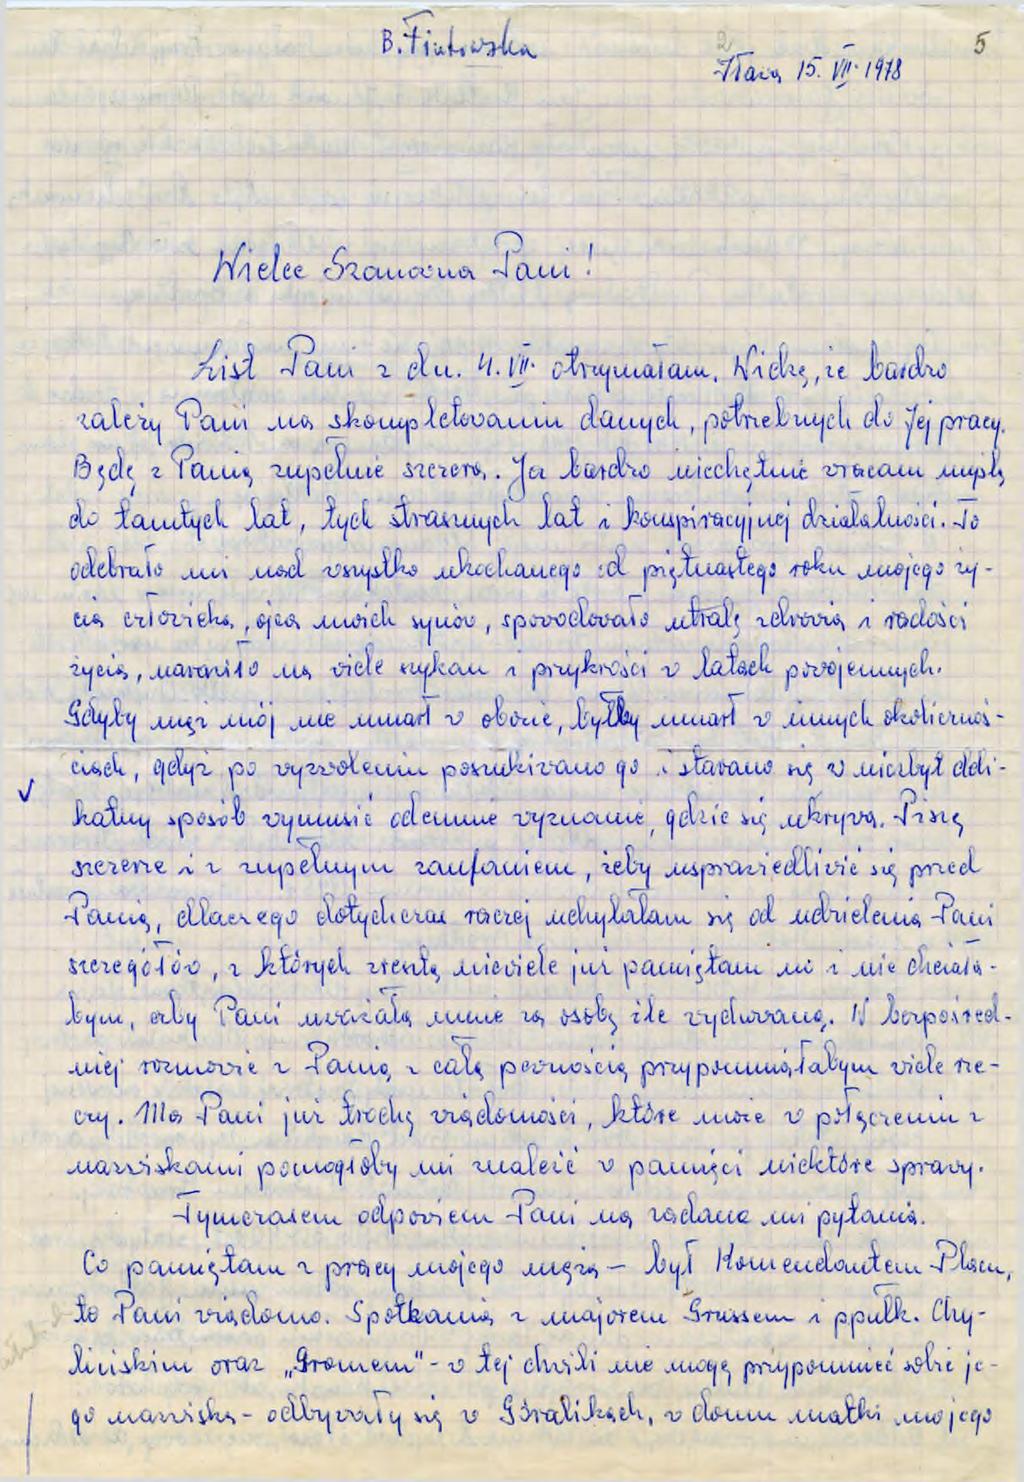 B. Fiutowska
2
5
Iława 15. VII. 1978
Wielce Szanowna Pani!
List Pani z dn. 4. VII. otrzymałam. Widzę, że bardzo
zależy Pani na skompletowaniu danych, potrzebnych do Jej pracy.
Będę z Panią zupełnie szczera. Ja bardzo niechętnie wracam myślą
do tamtych lat, tych strasznych lat i konspiracyjnej działalności. To
odebrało mi nad wszystko ukochanego od piętnastego roku mojego ży-
cia człowieka, ojca moich synów, spowodowało utratę zdrowia i radości
życia, naraziło na wiele szykan i przykrości w latach powojennych.
Gdyby mąż mój nie umarł w obozie, byłby umarł w innych okolicznoś-
ciach, gdyż po wyzwoleniu poszukiwano go i starano się w niezbyt deli-
katny sposób wymusić odemnie wyznanie, gdzie się ukrywa. Piszę
szczerze i z zupełnym zaufaniem, żeby usprawiedliwić się przed
Panią, dlaczego dotychczas raczej uchylałam się od udzielenia Pani
szczegółów, z których zresztą niewiele już pamiętam no i nie chciała-
bym, aby Pani uważała mnie za osobę źle wychowaną. W bezpośred-
niej rozmowie z Panią z całą pewnością przypomniałabym wiele rze-
czy. Ma Pani już trochę wiadomości, które może w połączeniu z
nazwiskami pomogłoby mi znaleźć w pamięci niektóre sprawy.
Tymczasem odpowiem Pani na zadane mi pytania.
Co pamiętam z pracy mojego męża – był Komendantem Placu,
to Pani wiadomo. Spotkania z majorem Grussem i ppułk. Chy-
lińskim oraz „Gromem" – w tej chwili nie mogę przypomnieć sobie je-
go nazwiska – odbywały się w Góralikach, w domu matki mojego